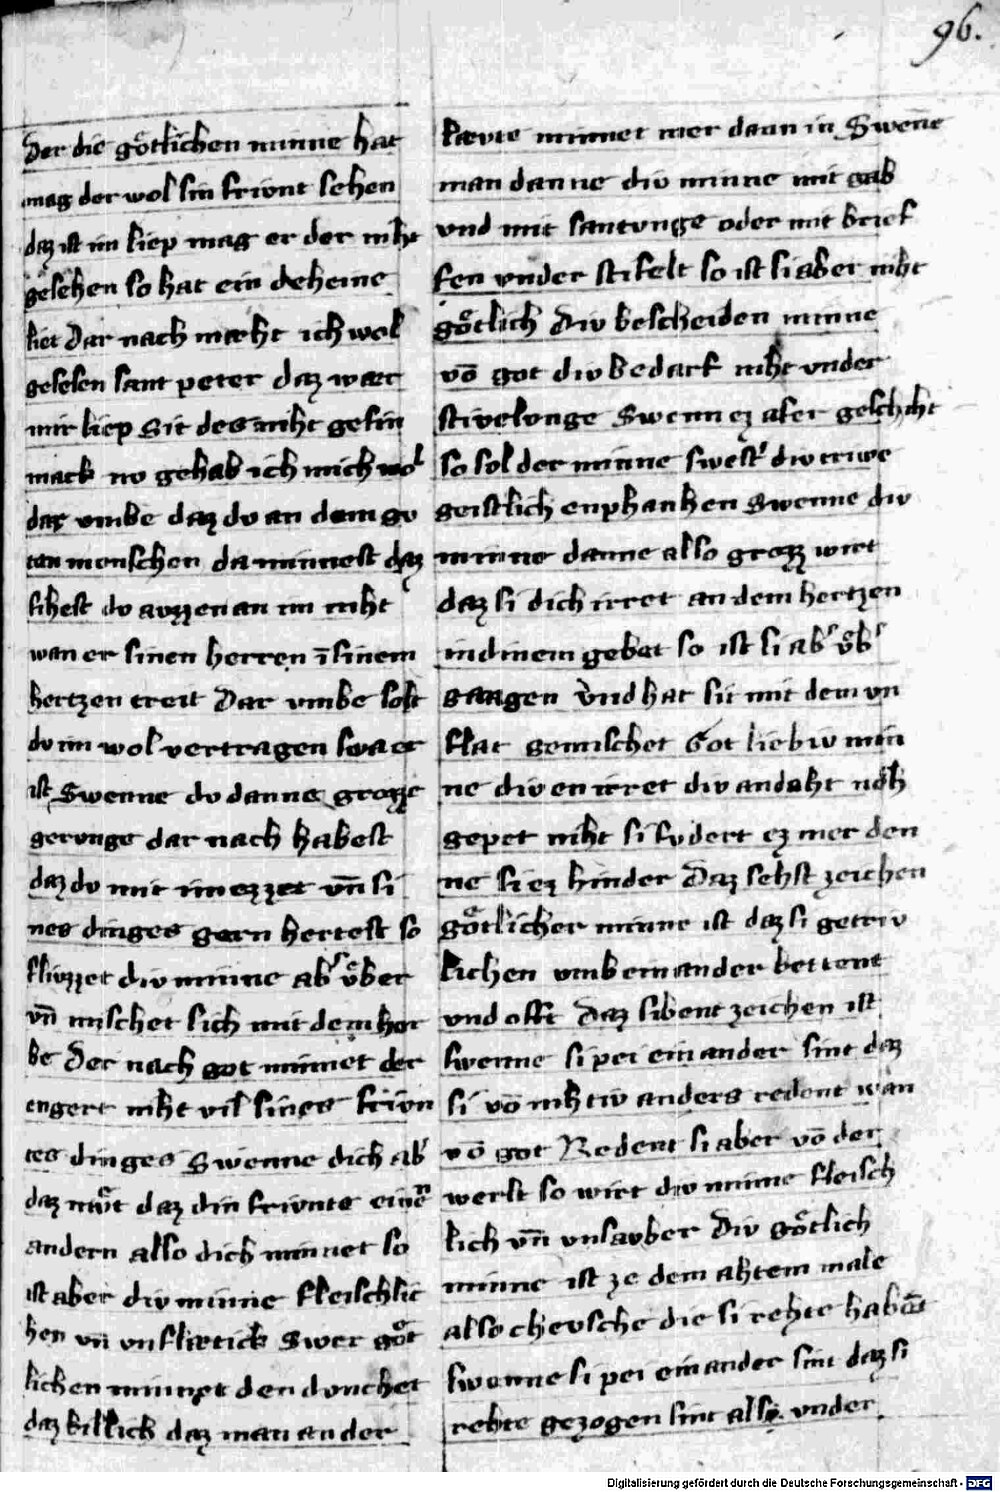 96.
Der die gͦtlichen minne hat
mag der wol sin frivnt sehen
daz ist im liep mag er der niht
gesehen so hat ein deheine
liet Dar nach mœht ich wol
gelesen sant peter daz wær
mir liep Sit des niht gesin
mack nv gehab ich mich wol
dar vmbe daz dv an dem gv
ten menschen da minnest daz
sihest dv avzzen an im niht
wan er sinen herren ī sinem
hertzen treit Dar vmbe solt
dv im wol vertragen swa er
ist Swenne dv danne grozze
gervnge dar nach habest
daz dv mit im ezzet vn̄ si
nes dinges gern hertest so
flivzzet div minne ab' v̊ber
vn̄ mischet sich mit dem hor
be Der nach got minnet der
engert niht vil sines frivn
tes dinges Swenne dich ab'
daz mv̊t daz din frivnt einē
andern also dich minnet so
ist aber div minne fleischlic
hen vn̄ vnflætick Swer gͦt
lichen minnet den dvnchet
daz billick daz man an der
lævte minnet mer dann in Swenne
man danne div minne mit gab
vnd mit santvnge oder mit brief
fen vnder stifelt so ist si aber niht
gͦtlich Div bescheiden minne
vō got div bedarf niht vnder
stivelvnge Swenn ez afer geschiht
so sol der minne swest' div triwe
geistlich enphanhen Swenne div
minne danne also grozz wirt
daz si dich irret an dem hertzen
in dinem gebet so ist si ab' v̊b'
gangen Vnd hat sih mit dem vn
flat gemischet Got liebiv min
ne div en irret div andaht noh
gepet niht si fvdert ez mer den
ne si ez hinder Daz sehst zeichen
gͦtlicher minne ist daz si getriv
lichen vmb ein ander bettent
vnd offt Daz sibent zeichen ist
swenne si pei ein ander sint daz
si vō nihtiv anders redent wan
vō got Redent si aber vō der
werlt so wirt div minne fleisch
lich vn̄ vnsavber Div gͦtlich
minne ist ze dem ahtem male
also chevsche die si rehte habēt
swenne si pei ein ander sint daz si
rehte gezogen sint als si vnder
Digitalisierung gefördert durch die Deutsche Forschungsgemeinschaft - DFG